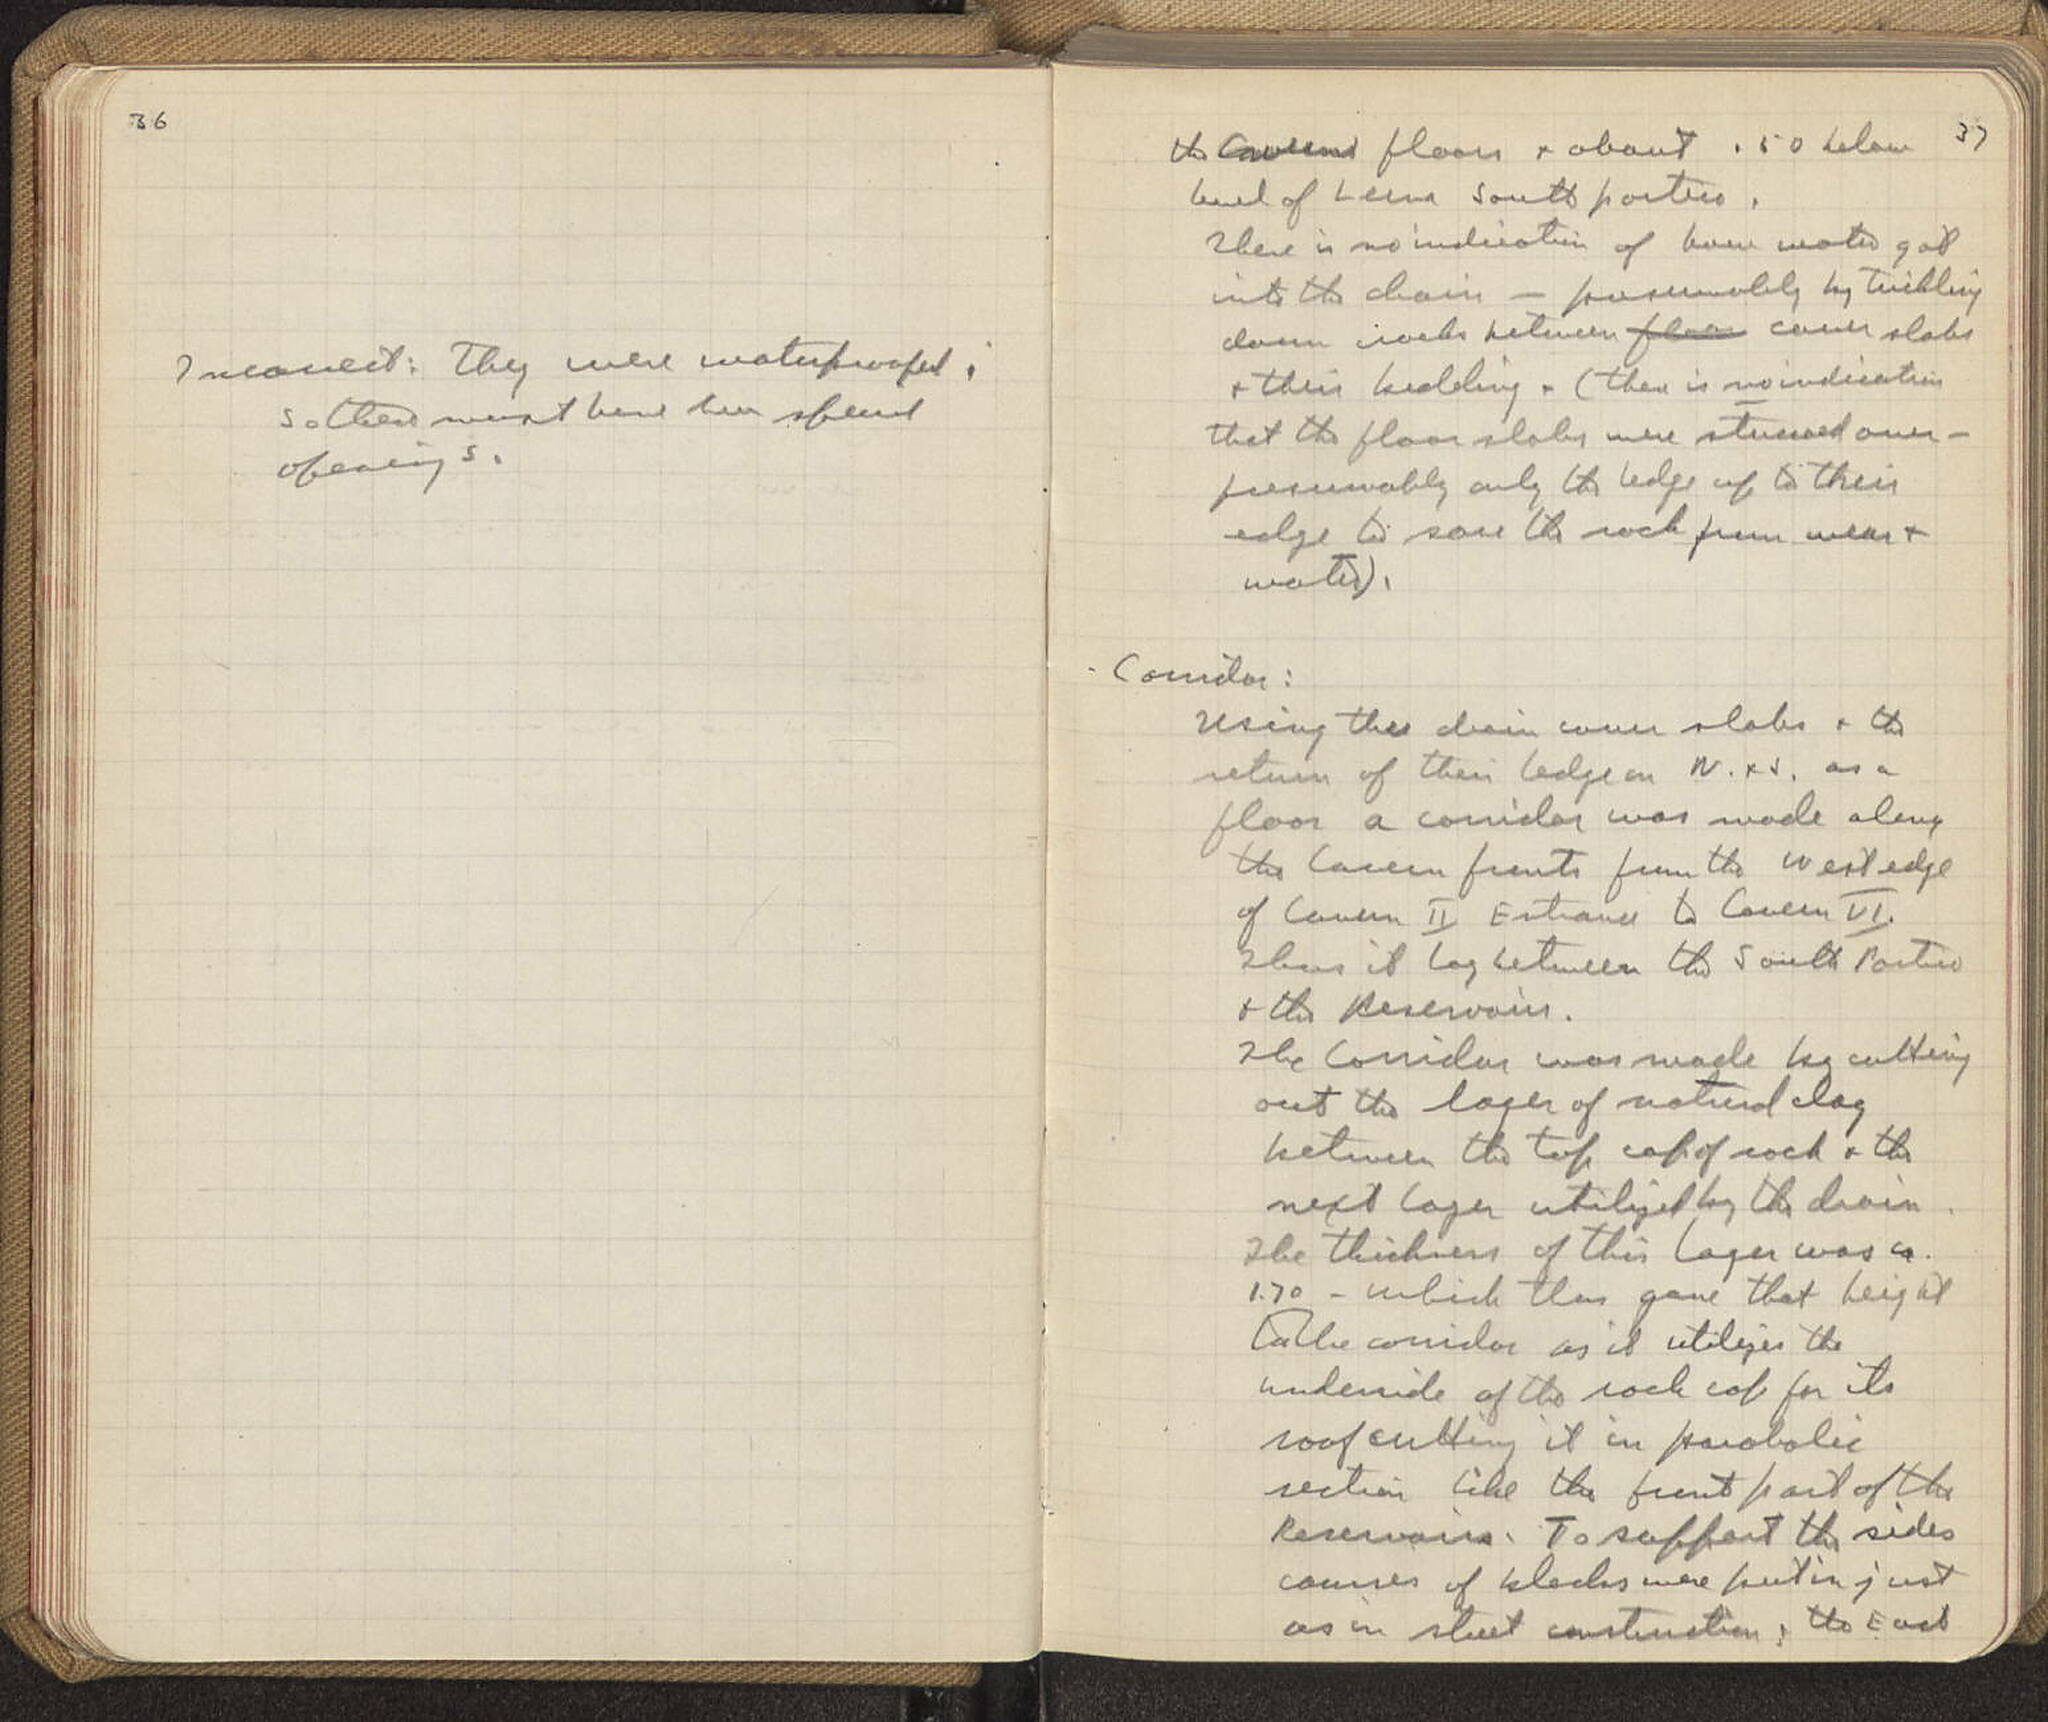 36
Incorrect: They were waterproofed;
so there must have been special
openings.
37
the Cavern floors + about .50 below
level of Lerna South portico.
There is no indication of how water got
into the drain — presumably by trickling
down cracks between floor cover slabs
+ their bedding. (there is no indication
that the floor slabs were stuccoed over —
presumably only the ledge up to their
edge to save the rock from wear +
water).
Corridor:
Using the drain cover slabs + the
return of their ledge on N. + S. as a
floor a corridor was made along
the Cavern fronts from the West edge
of Cavern II Entrance to Cavern VI.
Thus it lay between the South Portico
+ the Reservoirs.
The Corridor was made by cutting
out the layer of natural clay
between the top cap of rock + the
next layer utilized by the drain.
The thickness of this layer was ca.
1.70 — which thus gave that height
to the corridor as it utilizes the
underside of the rock cap for its
roof cutting it in parabolic
section like the front part of the
Reservoirs. To support the sides
courses of blocks were put in just
as in street construction; the East